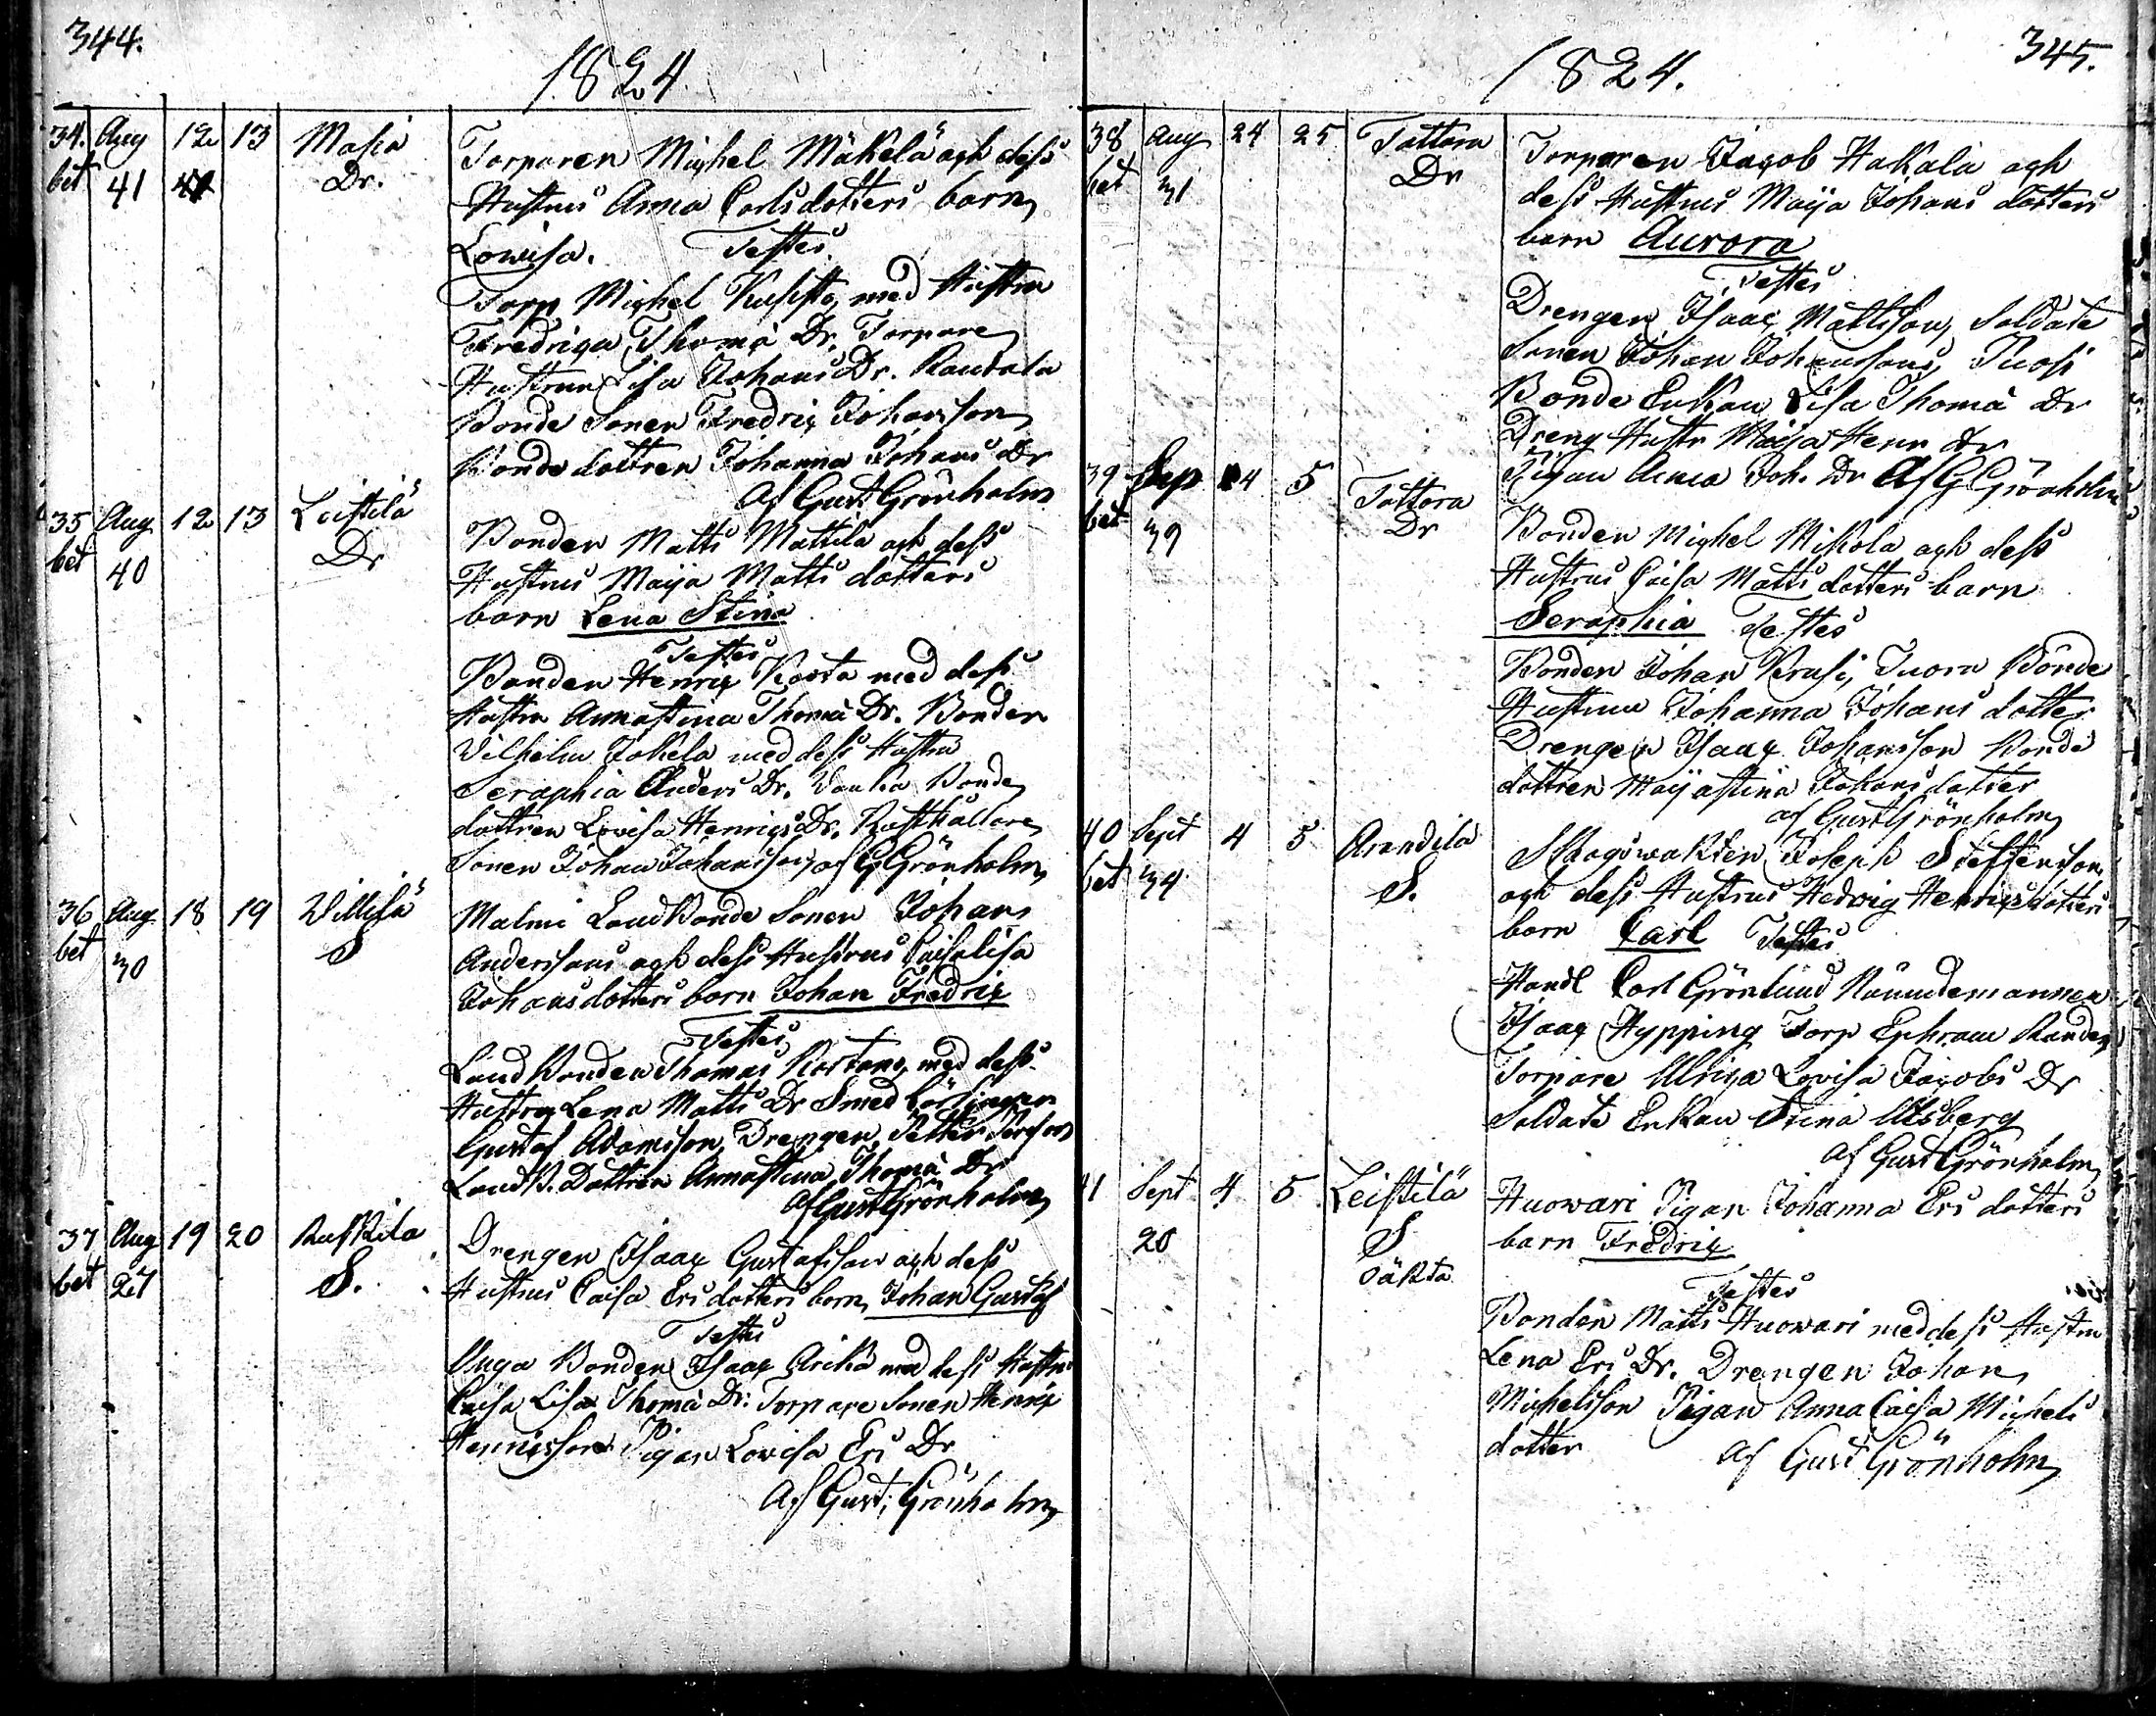 344.
1824
34. Aug 12 13 Masia
bet 41 Dr.
Torparen Michel Mäkelä och dess
Hustrus Anna Carlsdotters barn
Lowisa. Testes
Torp Michel med Hustru
Fredrica Thomä Dr. Torpare
Hustrun Lisa Johans Dr. Rautala
Bonde Sonen Fredric Johansson
Bonde dottren Johanna Johans Dr
Af Gust Grönholm
35 Aug 12 13 Leistilä
bet 40 Dr
Bonden Matts Mattila och dess
Hustrus Maija Matts dotters
barn Lena Stina
Testes
Bonden Henric Kåsta med dess
Hustru Annastina Thomä Dr. Bonden
Vilhelm Jokela med dess Hustru
Seraphia Anders Dr. Bonde
dottren Lovisa Henrics Dr. Rusthållare
Sonen Johan Johansson af G Grönholm
36 Aug 18 19 Villilä
bet 30 S
Malmi Landbonde Sonen Johan
Anderssons och dess Hustrus Caisalisa
Johansdotters barn Johan Fredric
Testes
Landbonden Thomas med dess
Hustru Lena Matts Dr Smed Lärlingen
Gustaf Adamsson, Drengen Petter
Land B. Dottren Annastina Thomä Dr
Af Gust Grönholm
37 Aug 19 20 Ruskila
bet 27 S.
Drengen Isaac Gustafsson och dess
Hustrus Caisa Ers dotters barn Johan Gustaf
Testes
Unga Bonden Isaac Arikä med dess Hustru
Caisa Lisa Thomä Dr. Torpare Sonen Henric
Henricsson Pigan Lovisa Ers Dr
Af Gust. Grönholm
345.
1824.
38 Aug 24 25 Tattara
bet 31 Dr
Torparen Jacob Hakala och
dess Hustrus Maija Johans dotters
barn Aurora
Testes
Drengen Isaac Mattsson, Soldate
Sonen Johan Johansson,
Bonde Enkan Lisa Thomä Dr
Dreng Hustr Maija Henr Dr
Pigan Anna Joh. Dr Af G Grönholm
39 Sep 4 5 Tattara
bet 39 Dr
Bonden Michel Mikola och dess
Hustrus Caisa Matts dotters barn
Seraphia Testes
Bonden Johan Krusi, Juora Bonde
Hustrun Johanna Johans dotter
Drengen Isaac Johansson Bonde
dottren Maijastina Johans dotter
af Gust Grönholm
40 Sept 4 5 Arandila
bet 34 S.
Skogswakten Joseph Steffensson
och dess Hustrus Hedwig Henricsdotters
barn Carl Testes
Handl Carl Grönlund Nämndemannen
Isaac Hypping Torp Ephraim
Torpare Ulrica Lovisa Jacobs Dr
Soldate Enkan Stina Alsberg
Af Gust Grönholm
41 Sept 4 5 Leistilä
20 S
oäkta
Huowari Pigan Johanna Ers dotters
barn Fredric
Testes
Bonden Matts Huowari med dess Hustru
Lena Ers Dr. Drengen Johan
Michelsson Pigan Anna Caisa Michels
dotter Af Gust Grönholm